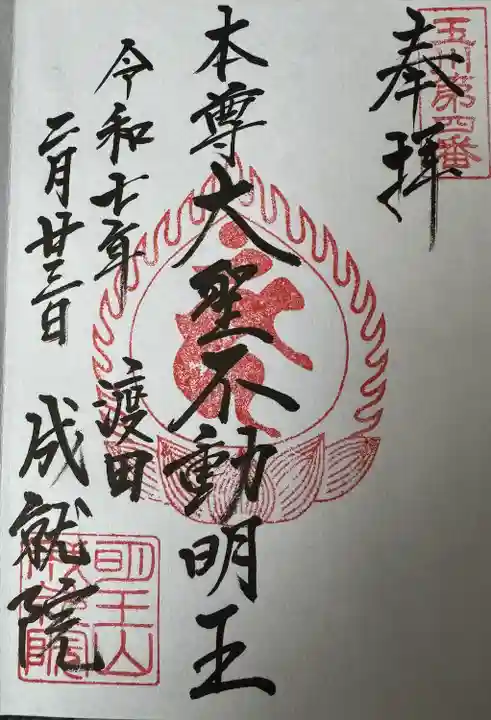 玉川第四番
奉拝
本尊大聖不動明王
令和七年
二月廿三日
渡田
成就院
明王山
成就院